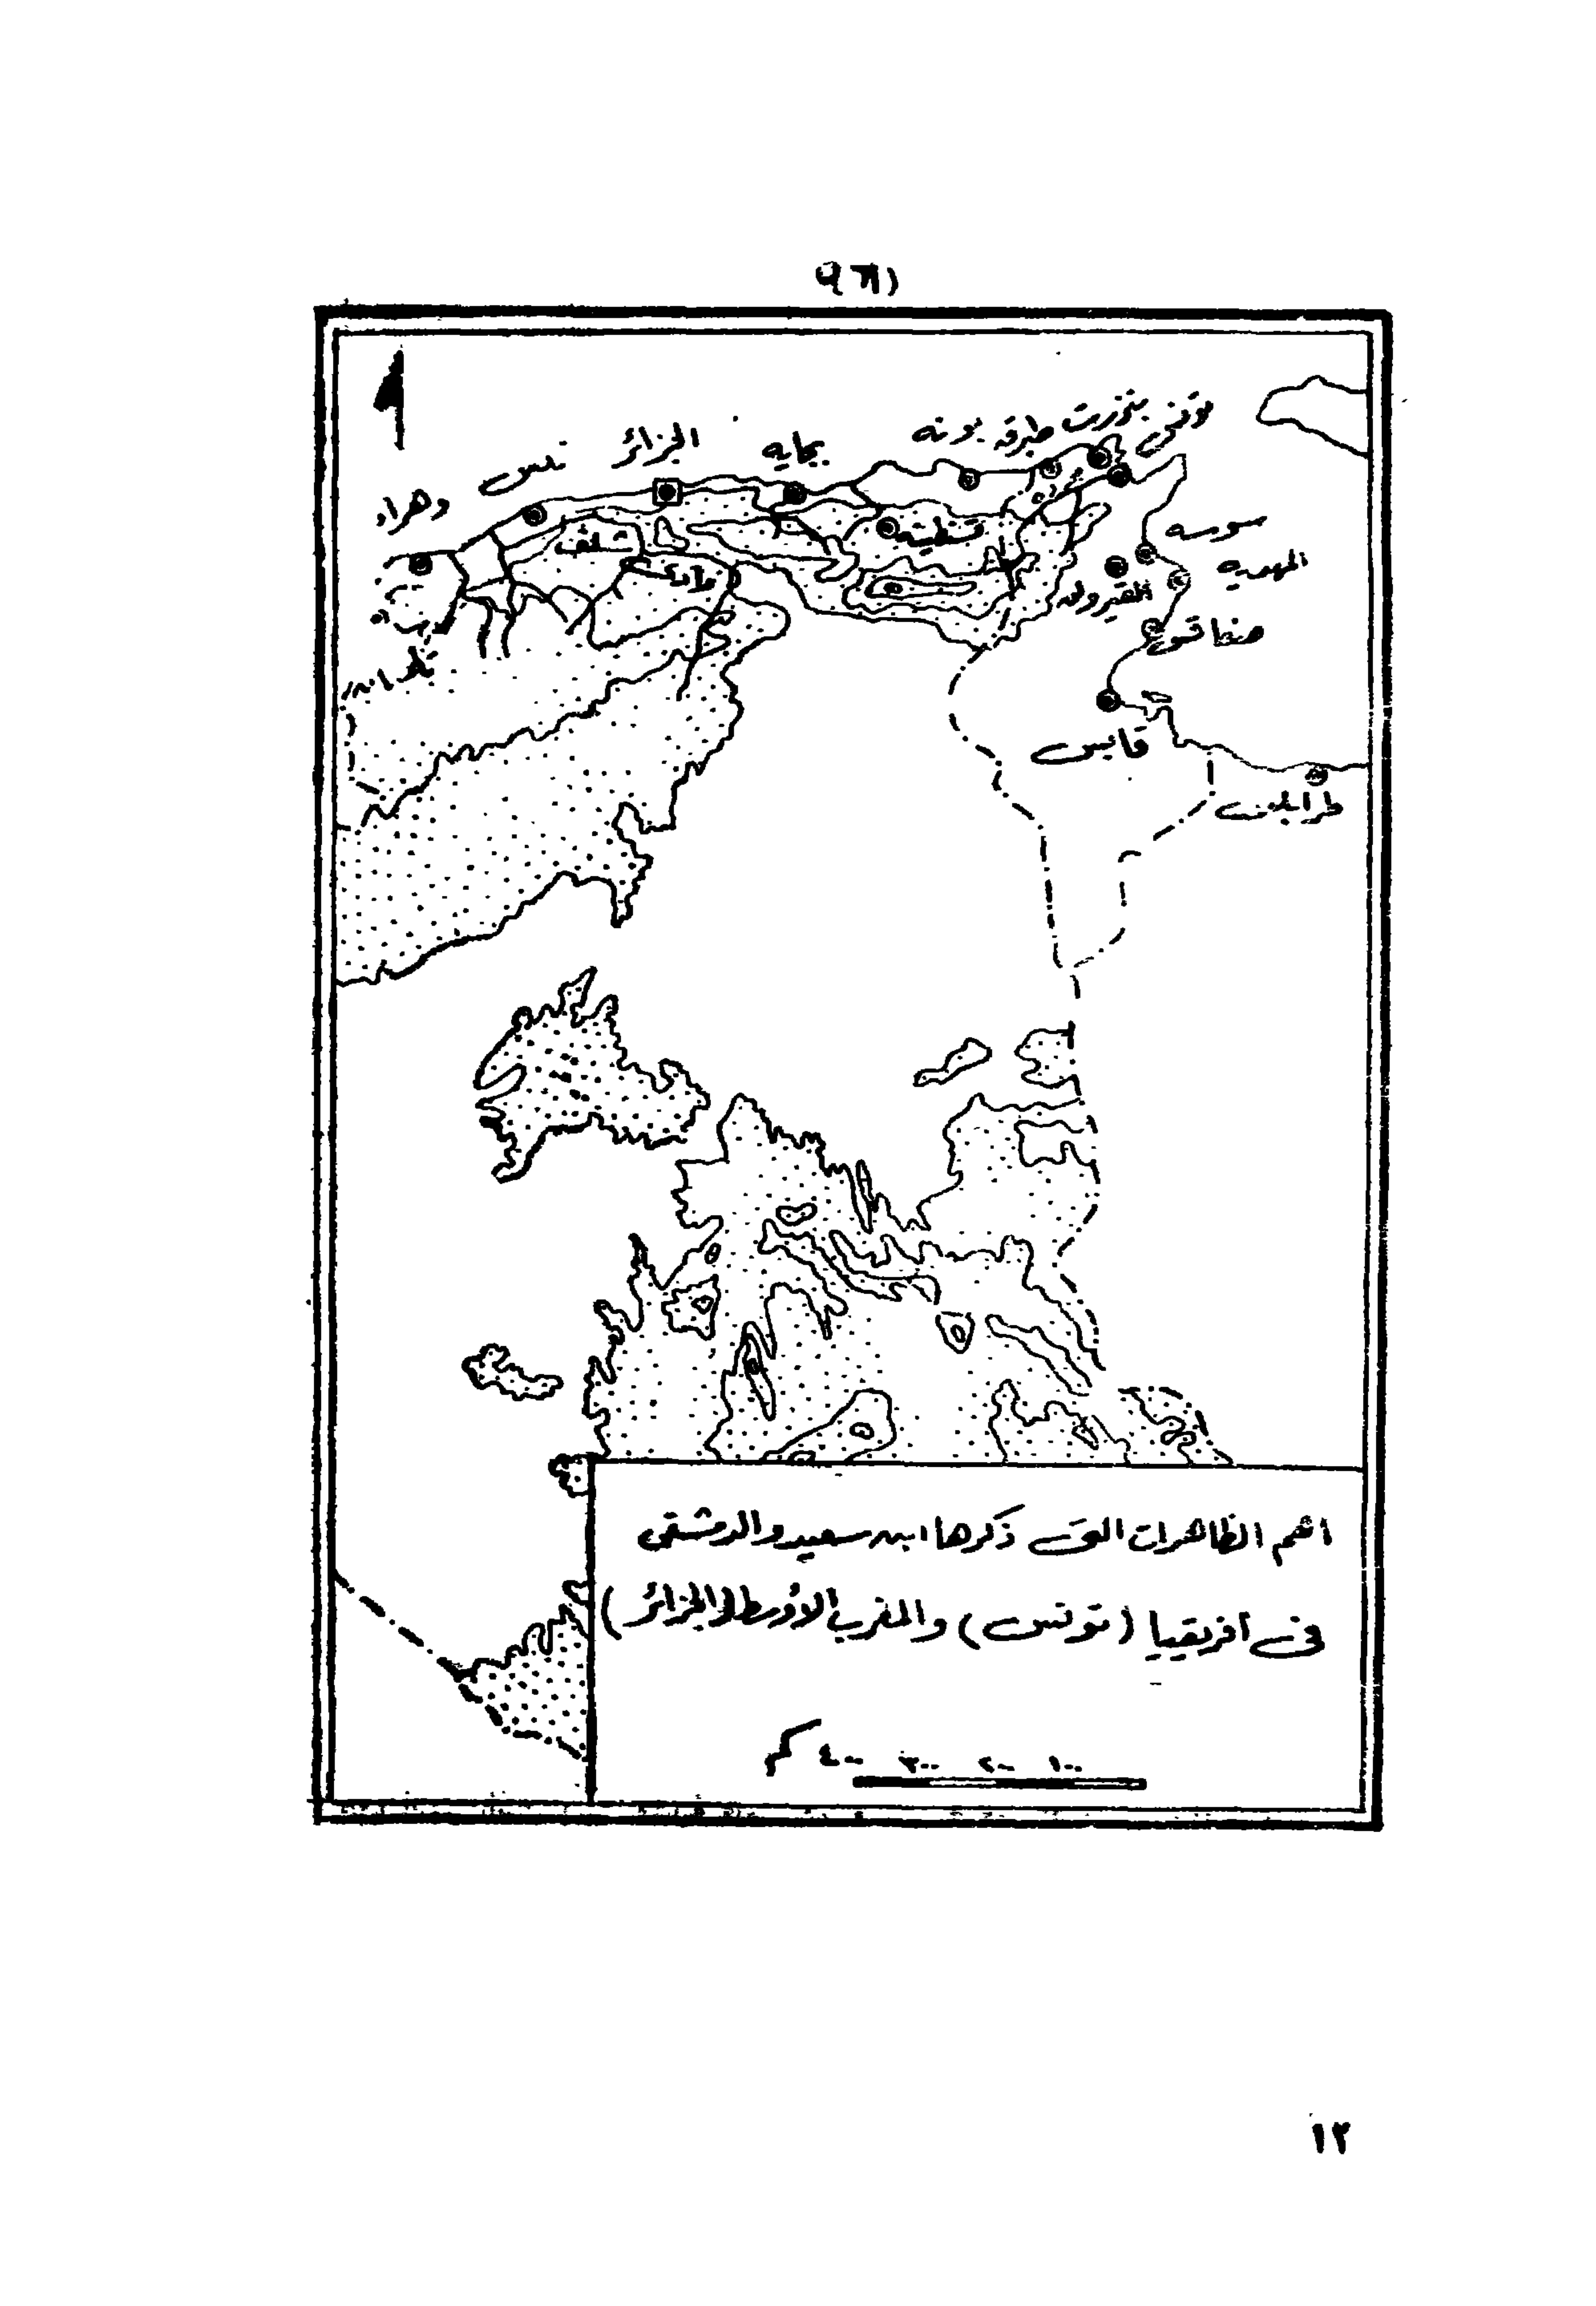 تونس
بنزرت
طبرقه
بونه
بجايه
الجزائر
تنس
وهران
سوسه
المهديه
شلف
القيروان
صفاقس
قابس
طرابلس
اهم الظاهرات التى ذكرها ابن سعيد والدمشقى
فى افريقيا (تونس) والمغرب الاوسط (الجزائر)
١٠٠ ٢٠٠ ٣٠٠ ٤٠٠ كم
١٢